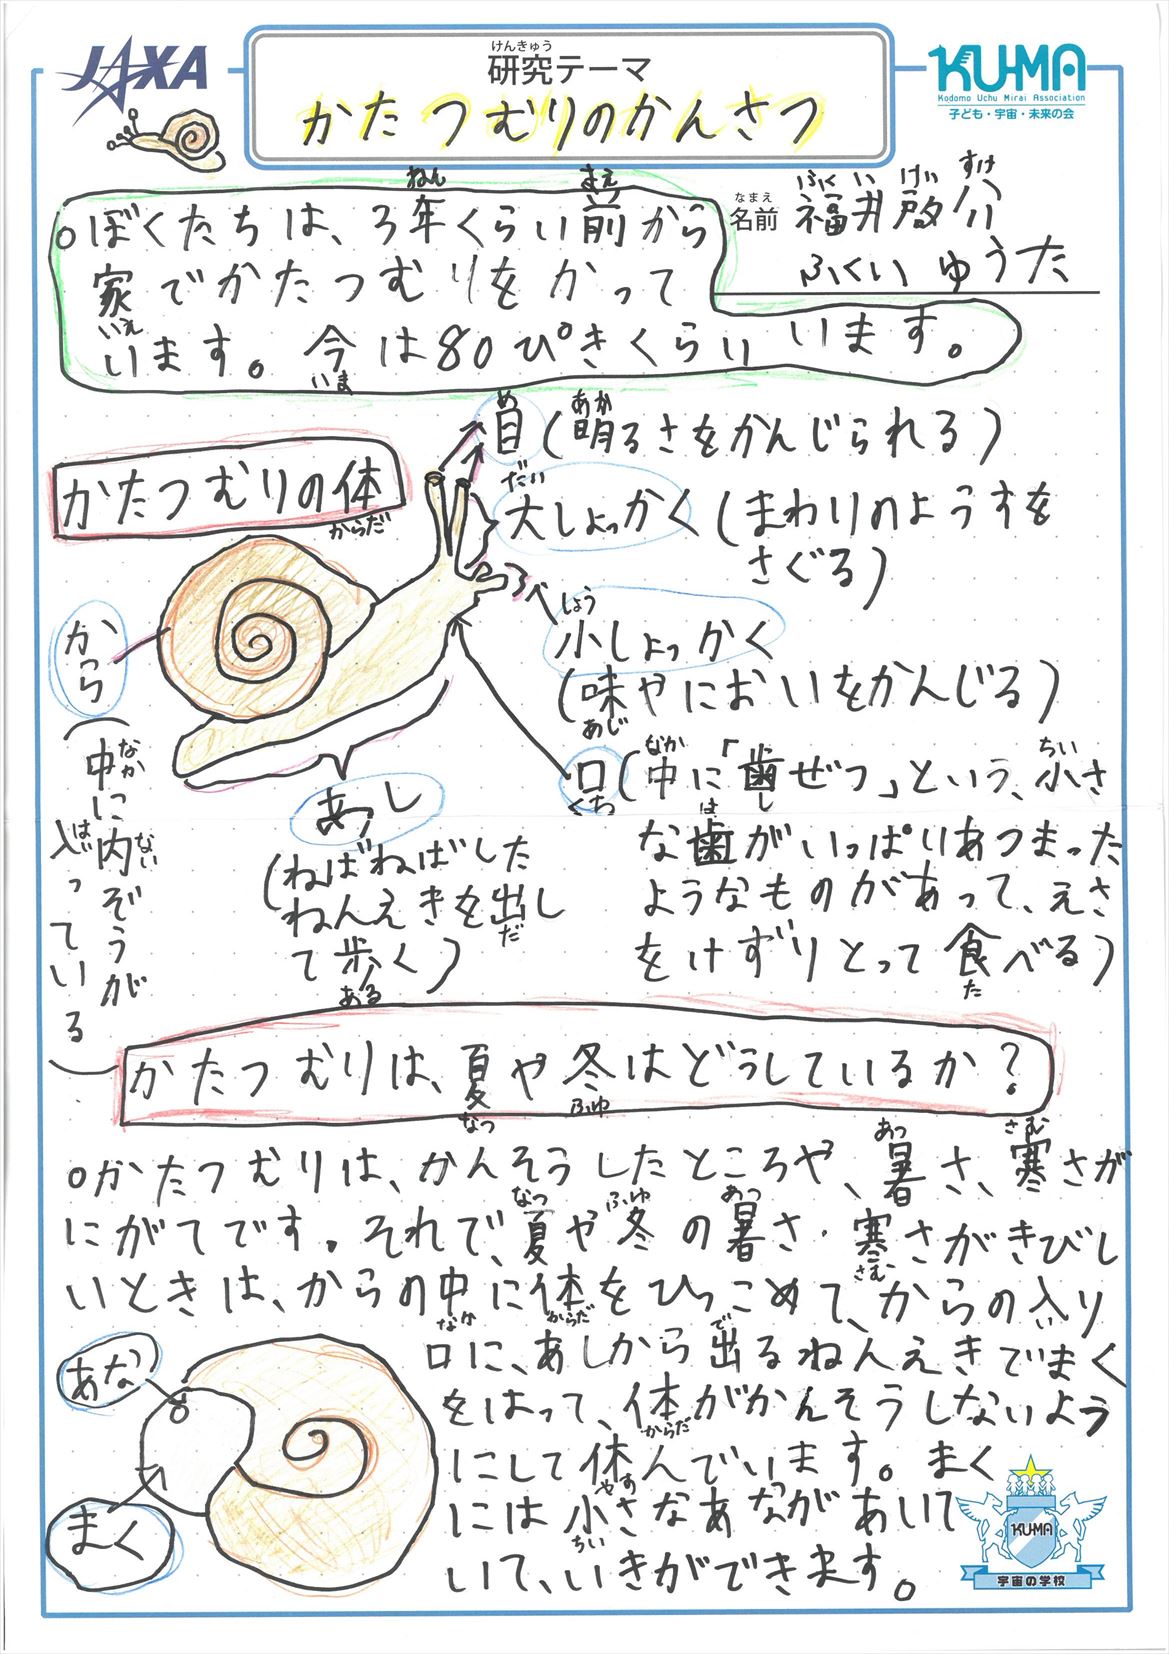 JAXA
けんきゅう
研究テーマ
かたつむりのかんさつ
KU-MA
Kodomo Uchu Mirai Association
子ども・宇宙・未来の会
なまえ
名前
ふくい けいすけ
福井啓介
ふくい ゆうた
ねん まえ
○ぼくたちは、3年くらい前から
家でかたつむりをかって
いえ
います。今は80ぴきくらいいます。
いま
かたつむりの体
からだ
め あか
目(明るさをかんじられる)
だい
大しょっかく(まわりのようすを
さぐる)
しょう
小しょっかく
(味やにおいをかんじる)
あじ
から
(中に内ぞうが
なか ない
入っている)
はい
なか ちい
口(中に「歯ぜつ」という、小さ
くち し
は
な歯がいっぱりあつまった
ようなものがあって、えさ
をけずりとって食べる)
た
あし
(ねばねばした
ねんえきを出し
だ
て歩く)
ある
かたつむりは、夏や冬はどうしているか?
なつ ふゆ
あつ さむ
○かたつむりは、かんそうしたところや、暑さ、寒さが
なつ ふゆ あつ
にがてです。それで、夏や冬の暑さ・寒さがきびし
さむ
いときは、からの中に体をひっこめて、からの入り
なか からだ い
で
口に、あしから出るねんえきでまく
をはって、体がかんそうしないよう
からだ
にして休んでいます。まく
やす
には小さなあながあいて
ちい
いて、いきができます。
あな
まく
KU-MA
宇宙の学校